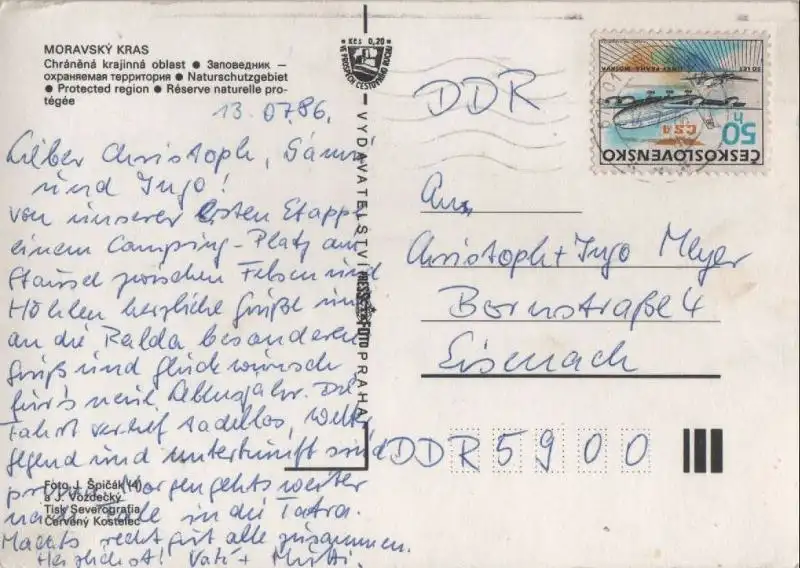 MORAVSKÝ KRAS
Chráněná krajinná oblast ● Заповедник —
охраняемая территория ● Naturschutzgebiet
● Protected region ● Réserve naturelle pro-
tégée
13.07.86.
Lieber Christoph,
und Ingo!
von unserer ersten Etappe,
einem Camping-Platz am
Stausee zwischen Felsen und
Höhlen herzliche Grüße und
an die Ralda besonderen
Gruß und Glückwünsche
für's neue Lebensjahr. Die
Fahrt verlief tadellos, Wetter
Gegend und Unterkunft sind
prima. Morgen gehts weiter
nach in die Tatra.
Machts recht gut alle zusammen.
Herzlichst! Vati + Mutti.
Foto J. Špičák (4)
a J. Vozdecký
Tisk Severografia
Červený Kostelec
Kčs 0,20
VE PROSPĚCH CESTOVNÍHO RUCHU
VYDAVATELSTVÍ PRESSFOTO PRAHA
DDR
50 LET
PRAHA-MOSKVA
ČSA
50 h
ČESKOSLOVENSKO
An
Christoph + Ingo Meyer
Bornstraße 4
Eisenach
DDR 5900